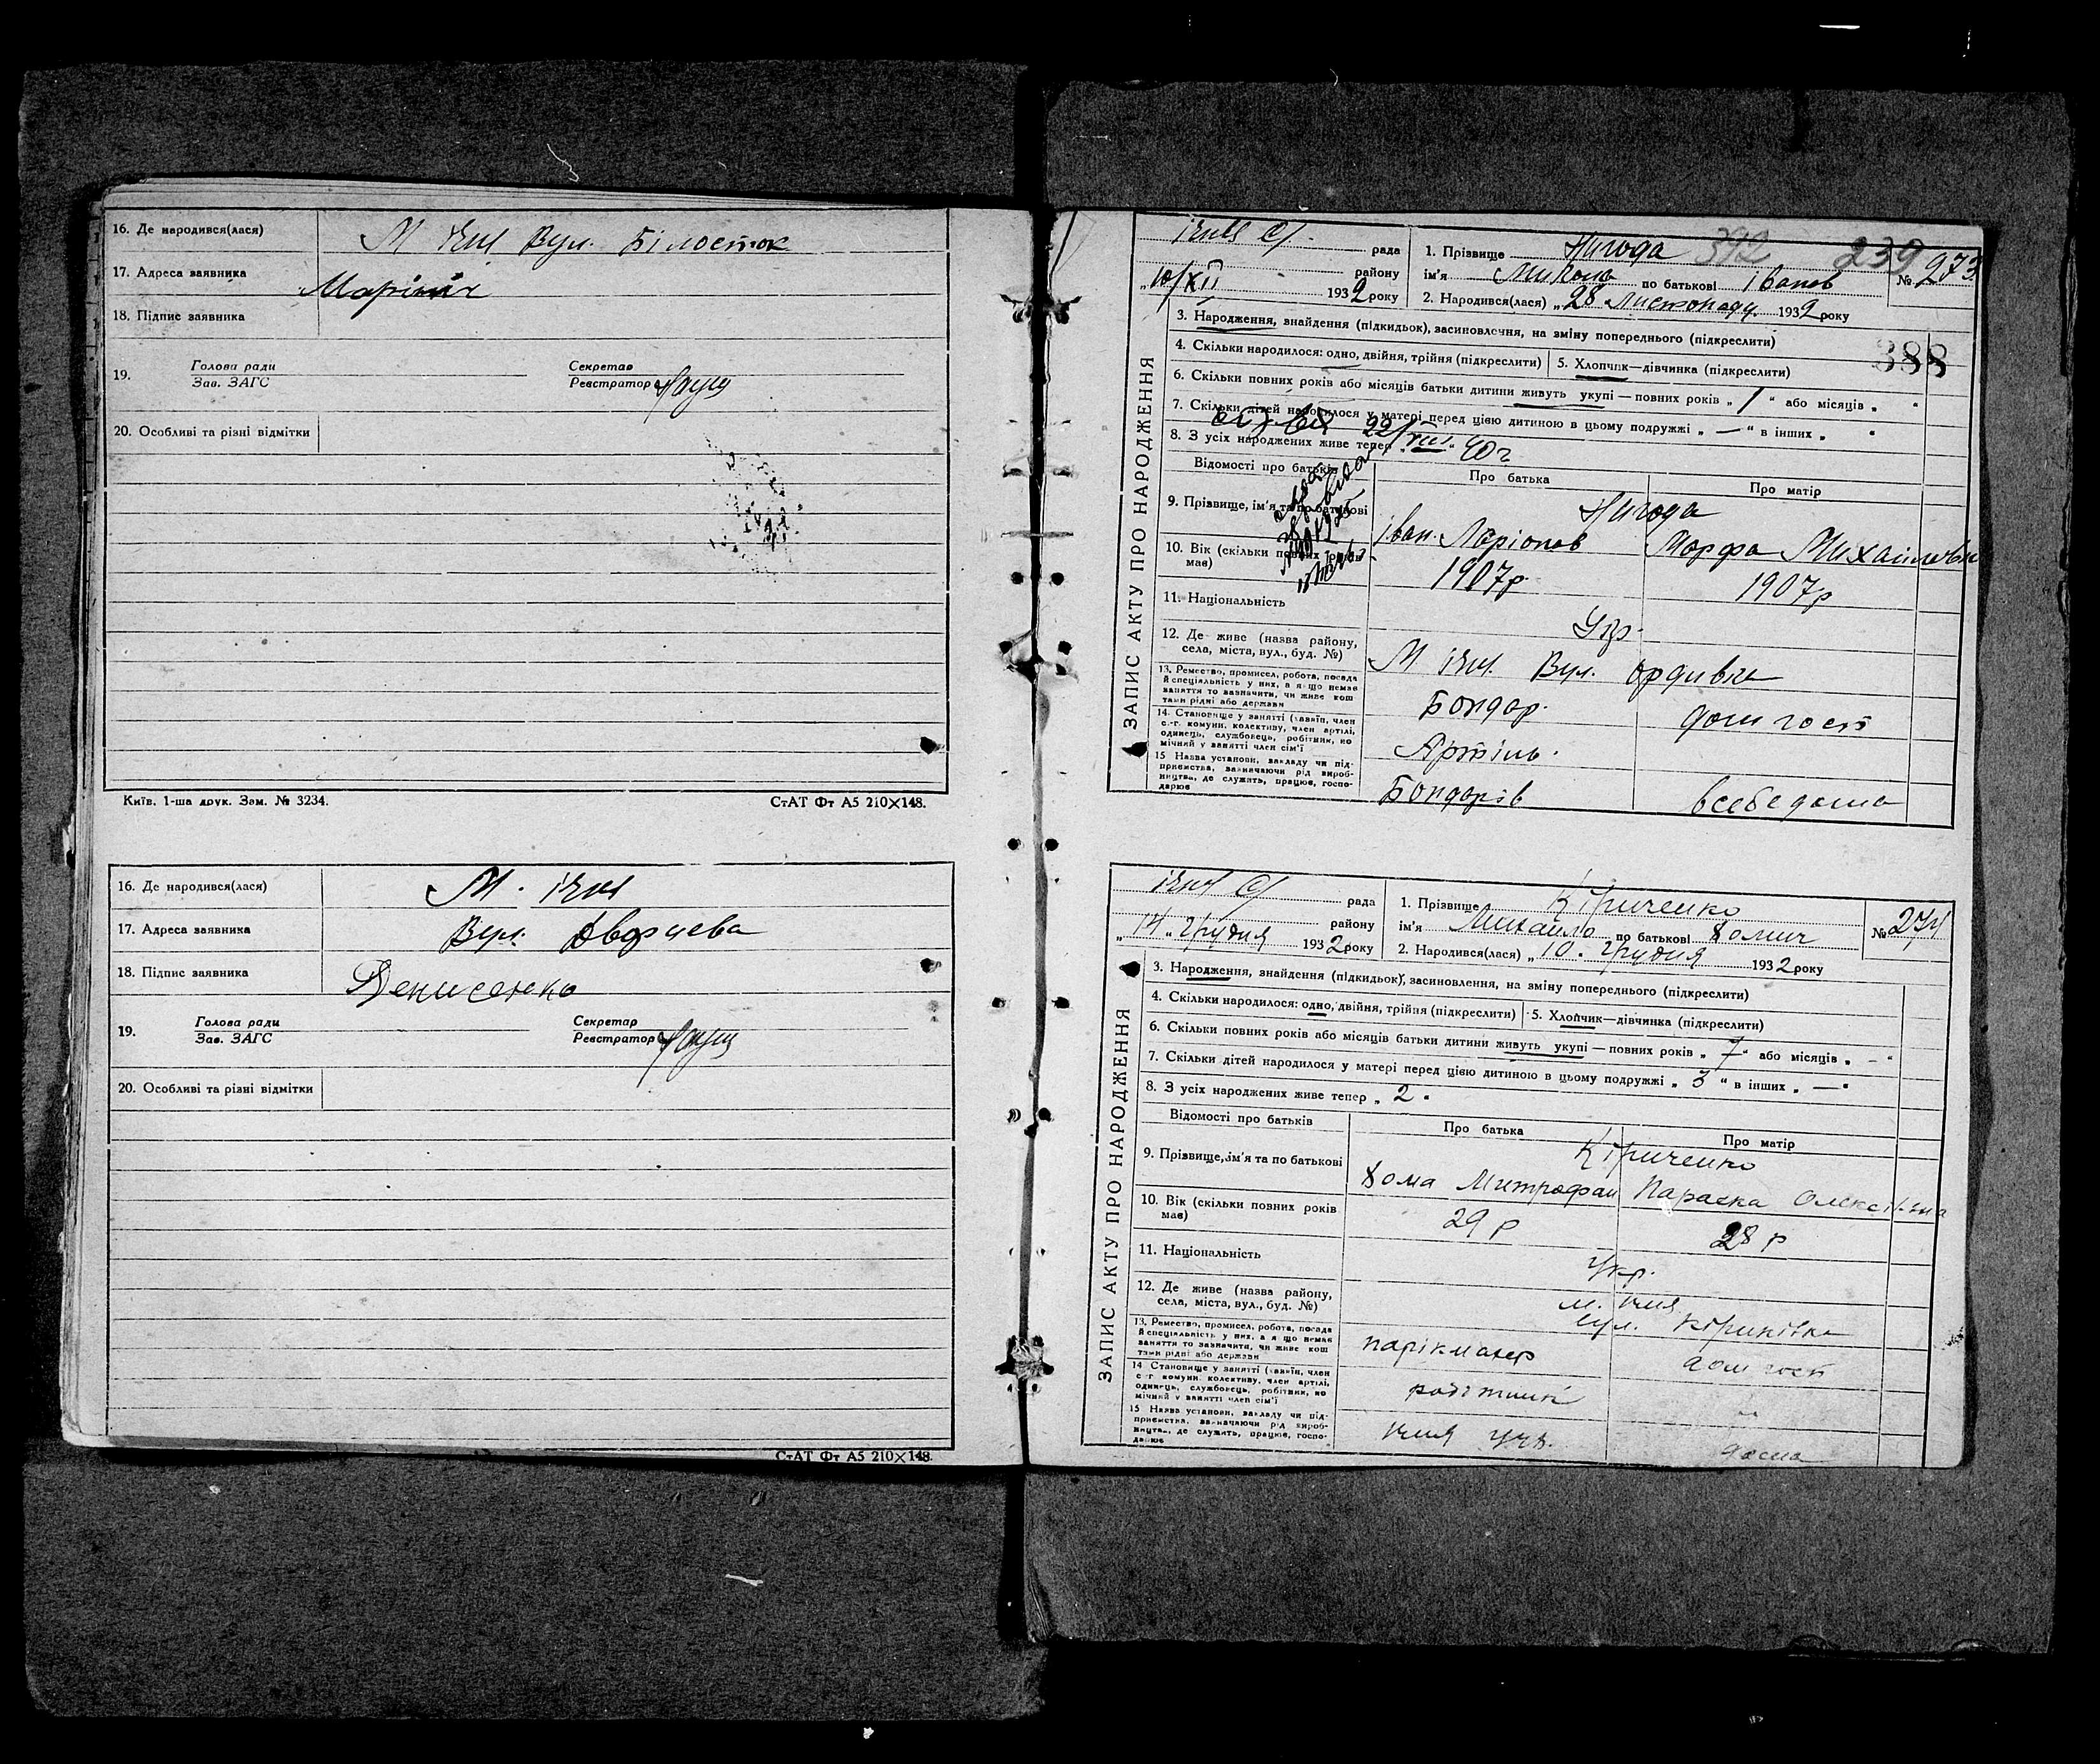 16. Де народився(лася) М Ічня Вул. Білосток
17. Адреса заявника
18. Підпис заявника
19. Голова ради Секретар
Зав. ЗАГС Реєстратор
20. Особливі та різні відмітки
Київ. 1-ша друк. Зам. № 3234. СтАТ Фт А5 210×148.
16. Де народився(лася) М. Ічня
17. Адреса заявника Вул.
18. Підпис заявника Денисенко
19. Голова ради Секретар
Зав. ЗАГС Реєстратор
20. Особливі та різні відмітки
СтАТ Фт А5 210×148.
ЗАПИС АКТУ ПРО НАРОДЖЕННЯ
рада
району
10/XII 1932 року
1. Прізвище Нигода 392 239
ім'я Микола по батькові Іванов № 273
2. Народився(лася) „28 Листопаду 1932 року
3. Народження, знайдення (підкидьок), засиновлення, на зміну попереднього (підкреслити)
388
4. Скільки народилося: одно, двійня, трійня (підкреслити) 5. Хлопчик—дівчинка (підкреслити)
6. Скільки повних років або місяців батьки дитини живуть укупі — повних років „ 1 “ або місяців „ “
7. Скільки дітей народилося у матері перед цією дитиною в цьому подружжі „ — “ в інших „ “
8. З усіх народжених живе тепер
22/VIII 40г
Відомості про батьків Про батька Про матір
9. Прізвище, ім'я та по батькові Нигода
Іван Ларіонов Марфа Михайловн
10. Вік (скільки повних років має) 1907р. 1907р
11. Національність Укр.
12. Де живе (назва району, села, міста, вул., буд. №) М Ічня. Вул. Ордивка
13. Ремество, промисел, робота, посада й спеціяльність у них, а якщо немає заняття то зазначити, чи живе коштами рідні або держави Бондар. дом госп
14. Становище у занятті (хазяїн, член с.-г. комуни, колективу, член артілі, одинець, службовець, робітник, помічний у занятті член сім'ї Артіль.
15 Назва установи, закладу чи підприємства, зазначаючи рід виробництва, де служить, працює, господарює Бондарів в себе дома
ЗАПИС АКТУ ПРО НАРОДЖЕННЯ
рада
району
„14„ Грудня 1932 року
1. Прізвище Кіриченко
ім'я Михайло по батькові Хомич № 274
2. Народився(лася) „10. Грудня 1932 року
3. Народження, знайдення (підкидьок), засиновлення, на зміну попереднього (підкреслити)
4. Скільки народилося: одно, двійня, трійня (підкреслити) 5. Хлопчик—дівчинка (підкреслити)
6. Скільки повних років або місяців батьки дитини живуть укупі — повних років „ 7 “ або місяців „ – “
7. Скільки дітей народилося у матері перед цією дитиною в цьому подружжі „ 3 “ в інших „ — “
8. З усіх народжених живе тепер „ 2 “
Відомості про батьків Про батька Про матір
9. Прізвище, ім'я та по батькові Кіриченко
Хома Митрофан Параска Олексіївна
10. Вік (скільки повних років має) 29 р 28 р
11. Національність Укр.
12. Де живе (назва району, села, міста, вул., буд. №) м. Ічня
вул. Кіриківка
13. Ремество, промисел, робота, посада й спеціяльність у них, а якщо немає заняття то зазначити, чи живе коштами рідні або держави парікмахер дом госп
14 Становище у занятті (хазяїн, член с-г комуни, колективу, член артілі, одинець, службовець, робітник, помічний у занятті член сім'ї робітник
15 Назва установи, закладу чи підприємства, зазначаючи рід виробництва, де служить, працює, господарює Ічня дома